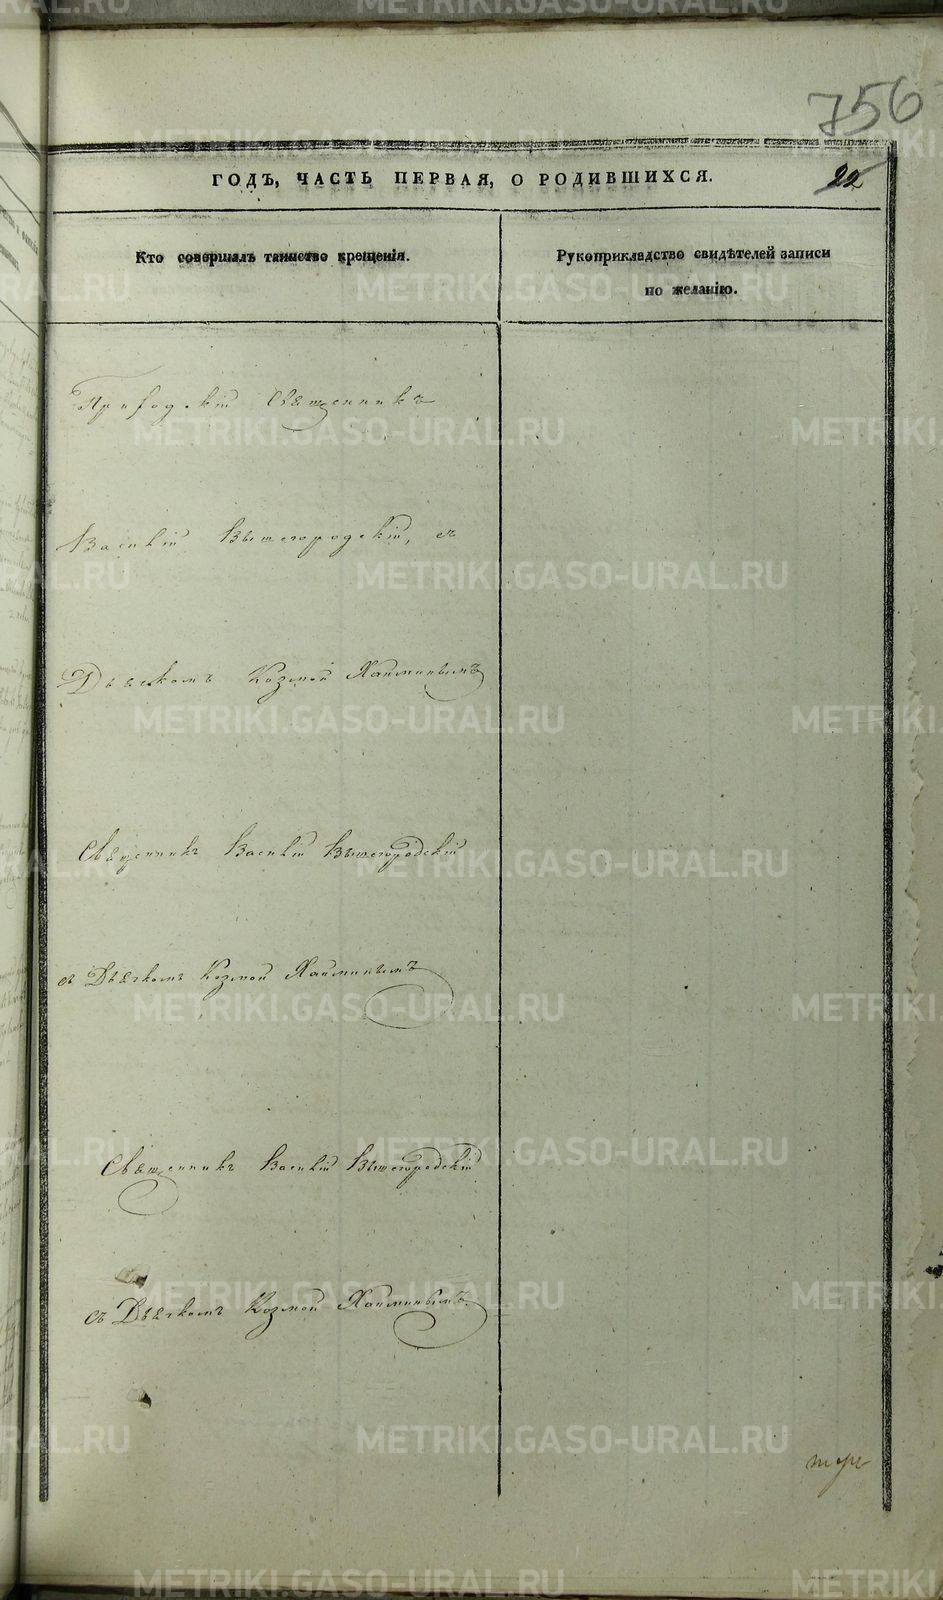 756
ГОДЪ, ЧАСТЬ ПЕРВАЯ, О РОДИВШИХСЯ.
22
Кто совершалъ таинство крещенія.
Рукоприкладство свидѣтелей записи
по желанію.
Приходскій Священникъ
Василій Вышегородскій, съ
Дьячкомъ Козмой Хайминымъ
Священникъ Василій Вышегородскій
съ Дьячкомъ Козмой Хайминымъ
Священникъ Василій Вышегородскій
съ Дьячкомъ Козмой Хайминымъ
METRIKI.GASO-URAL.RU